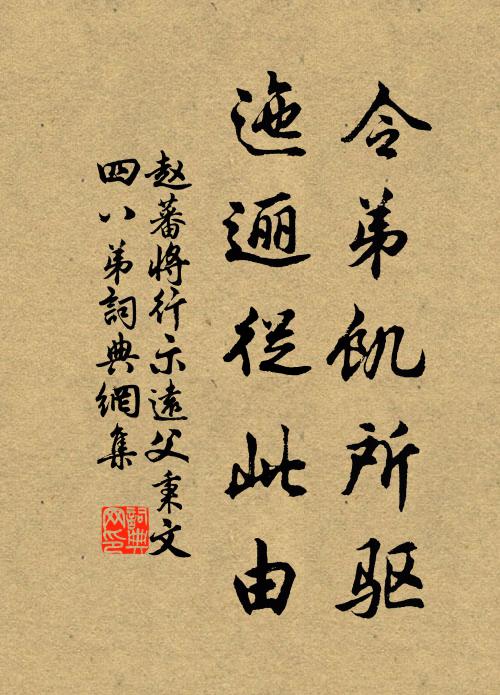 令弟飢所驱
迤逦從此由
赵蕃將行示遠父秉文
四八弟詞典網集
詞典
网印